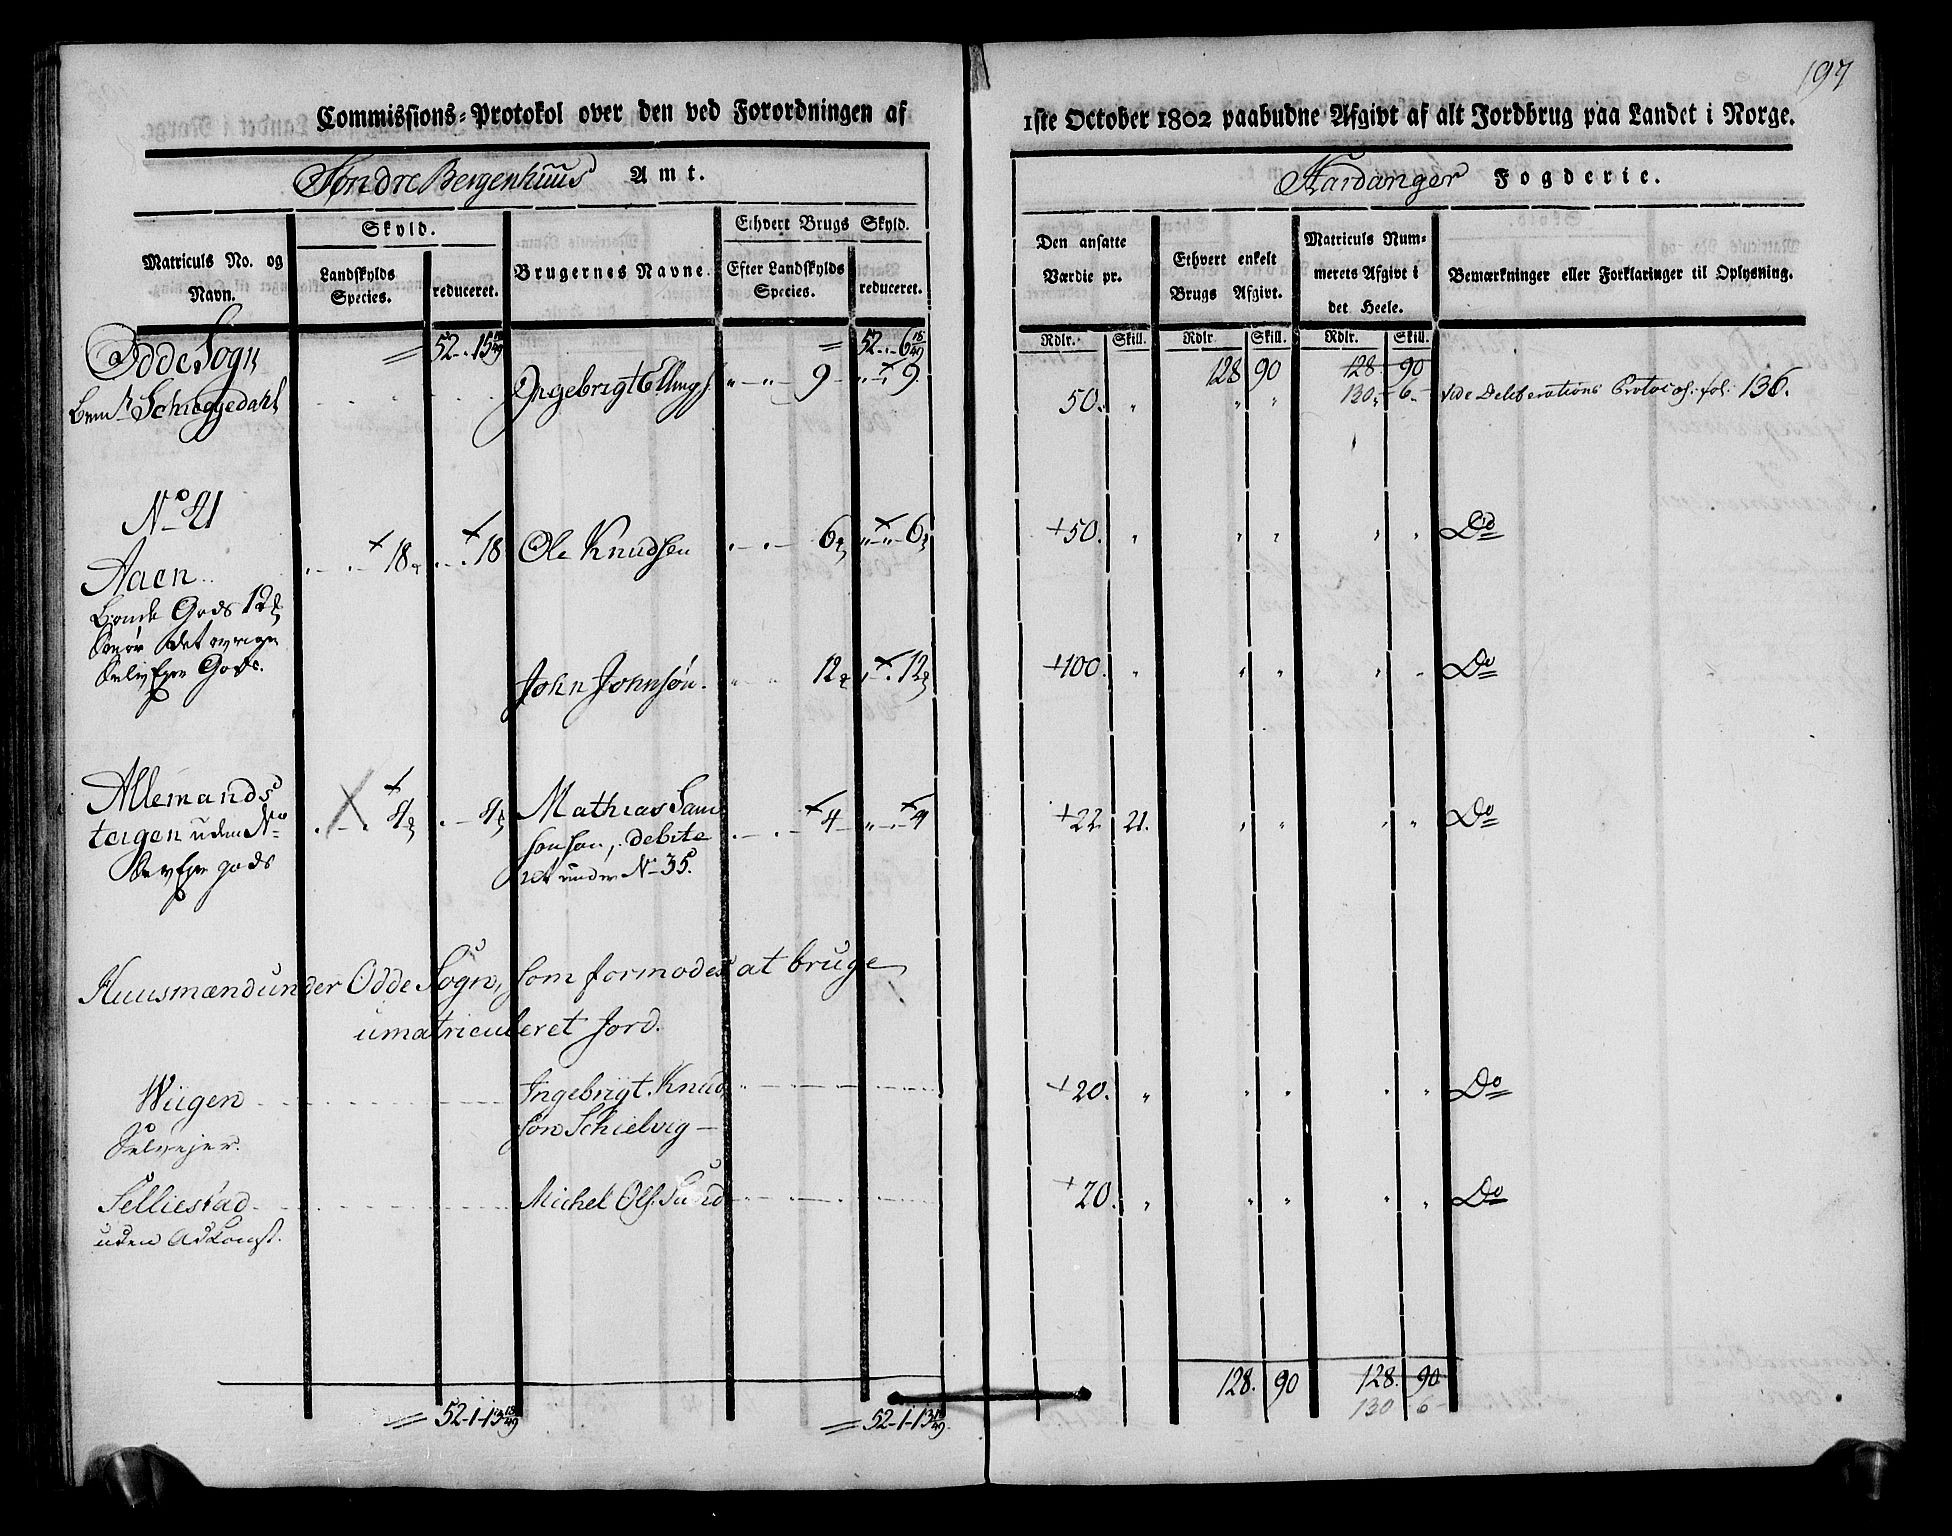 197
Commissions-Protokol over den ved Forordningen af 1ste October 1802 paabudne Afgivt af alt Jordbrug paa Landet i Norge.
Søndre Bergenhuus Amt. Hardanger Fogderie.
Matriculs No. og Navn.
Skyld.
Landskylds Species.
reduceret.
Brugernes Navne.
Ethvert Brugs Skyld.
Efter Landskylds Species.
reduceret.
Den ansatte Værdie pr.
Ethvert enkelt Brugs Afgivt.
Matriculs Nummerets Afgivt i det Heele.
Bemærkninger eller Forklaringer til Oplysning.
Rdlr. Skill. Rdlr Skill. Rdlr. Skill.
Odde Sogn = 52 - . 15 18/49 = 52 - . 6 18/49 128 90 128 - 90
Schieggedahl Ingebrigt Ellings. " - " - 9 - " 9. 50. " " " 130 - 6 - Vide Deliberations Protocol. fol. 136.
No 41
Aaen 18 18 Ole Knudsen 6 6 +50. " " " " " Do
Bonde Gods 12
det øvrige
Gods.
John Johnsøn. 12 12 +100. " " " " " Do
Allemands
teigen uden No 4 4 Mathias Sam
sonsøn, debite
ret under No 35. 4 4 +22. 21. " " " " Do
gods
Huusmænd under Odde Sogn, som formodes at bruge
umatriculeret Jord.
Wiigen Ingebrigt Knud
søn Schielvig - +20. " " " " " Do
Selvejer.
Selliestad Michel Ols. Sand +20. " " " " " Do
uden Adkomst.
128. 90 128. 90
130 - 6 -
= 52 - 1 - 13 18/49 = 52 - 1 - 13 18/49.